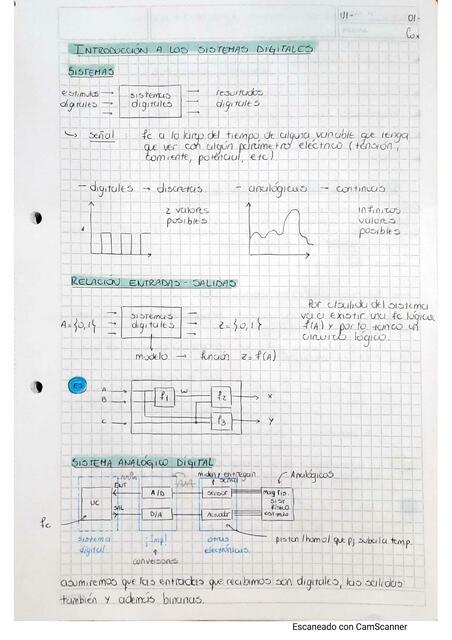 01-
INTRODUCCIÓN A LOS SISTEMAS DIGITALES
SISTEMAS
estímulos digitales → sistemas digitales → resultados digitales
señal : fc a lo largo del tiempo de alguna variable que tenga
que ver con algún parámetro eléctrico (tensión,
corriente, potencial, etc)
- digitales → discretas - analógicas → continuas
2 valores posibles
infinitos valores posibles
RELACIÓN ENTRADAS - SALIDAS
A={0,1} sistemas digitales Z={0,1}
modelo → función Z=f(A)
Por c/salida del sistema
va a existir una fc lógica
f(A) y por lo tanto un
circuito lógico.
EJ
A
B
C
f1
w
f2
f3
X
Y
SISTEMA ANALÓGICO DIGITAL
Analógicos
ENT
UC
SAL
A/D
D/A
Sensor
Actuador
fc
sistema digital
conversores
otras electrónicas
asumiremos que las entradas que recibamos son digitales, las salidas
también y además binarias.
Escaneado con CamScanner